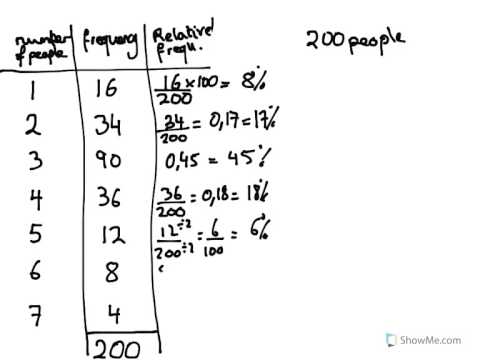 number of people frequency Relative frequ. 200 people
1 16 16/200 × 100 = 8%
2 34 34/200 = 0,17 = 17%
3 90 0,45 = 45%
4 36 36/200 = 0,18 = 18%
5 12 12÷2/200÷2 = 6/100 = 6%
6 8
7 4
200
ShowMe.com